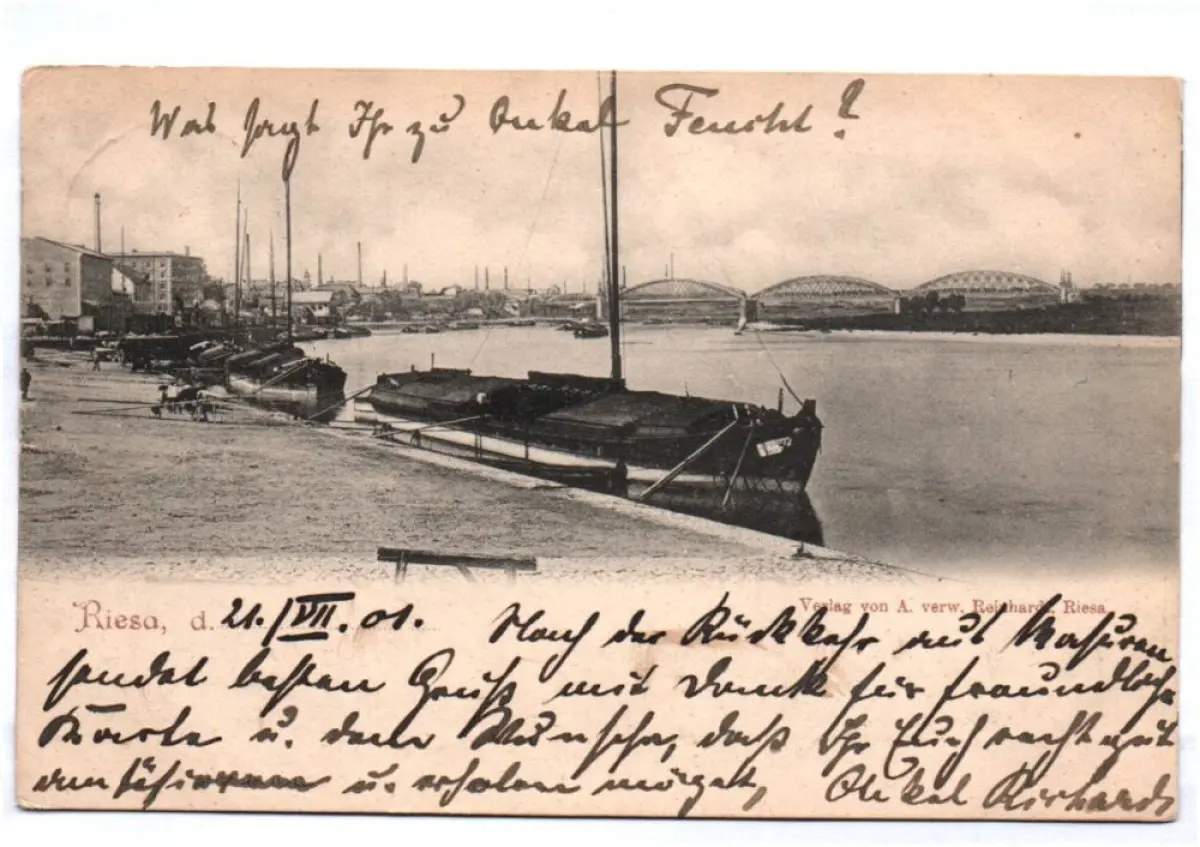 Was sagt Ihr zu Onkel Feucht?
Riesa, d. 21./VII. 01.
Verlag von A. verw. Reinhardt, Riesa
Nach der Rückkehr aus Masuren
sendet besten Gruß mit Danke für freundliche
Karte u. dem Wunsche, daß Ihr Euch recht gut
amüsieren u. erholen möget, Onkel Richard